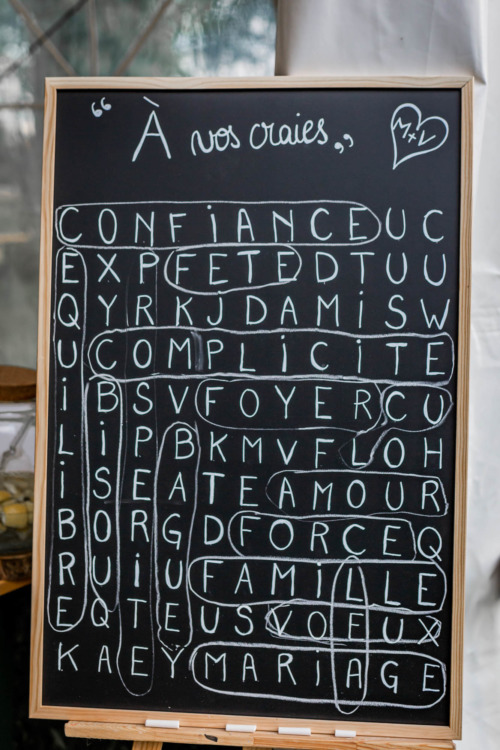 “ À vos craies „ M+V
CONFIANCEUC
EXPFETEDTUU
QYRKJDAMiSW
UCOMPLiCiTE
iBSVFOYERCU
LiPBKMVFLOH
iSEATEAMOUR
BORGDFORCEQ
RUiUFAMiLLE
EQTEUSVOEUX
KAEYMARiAGE